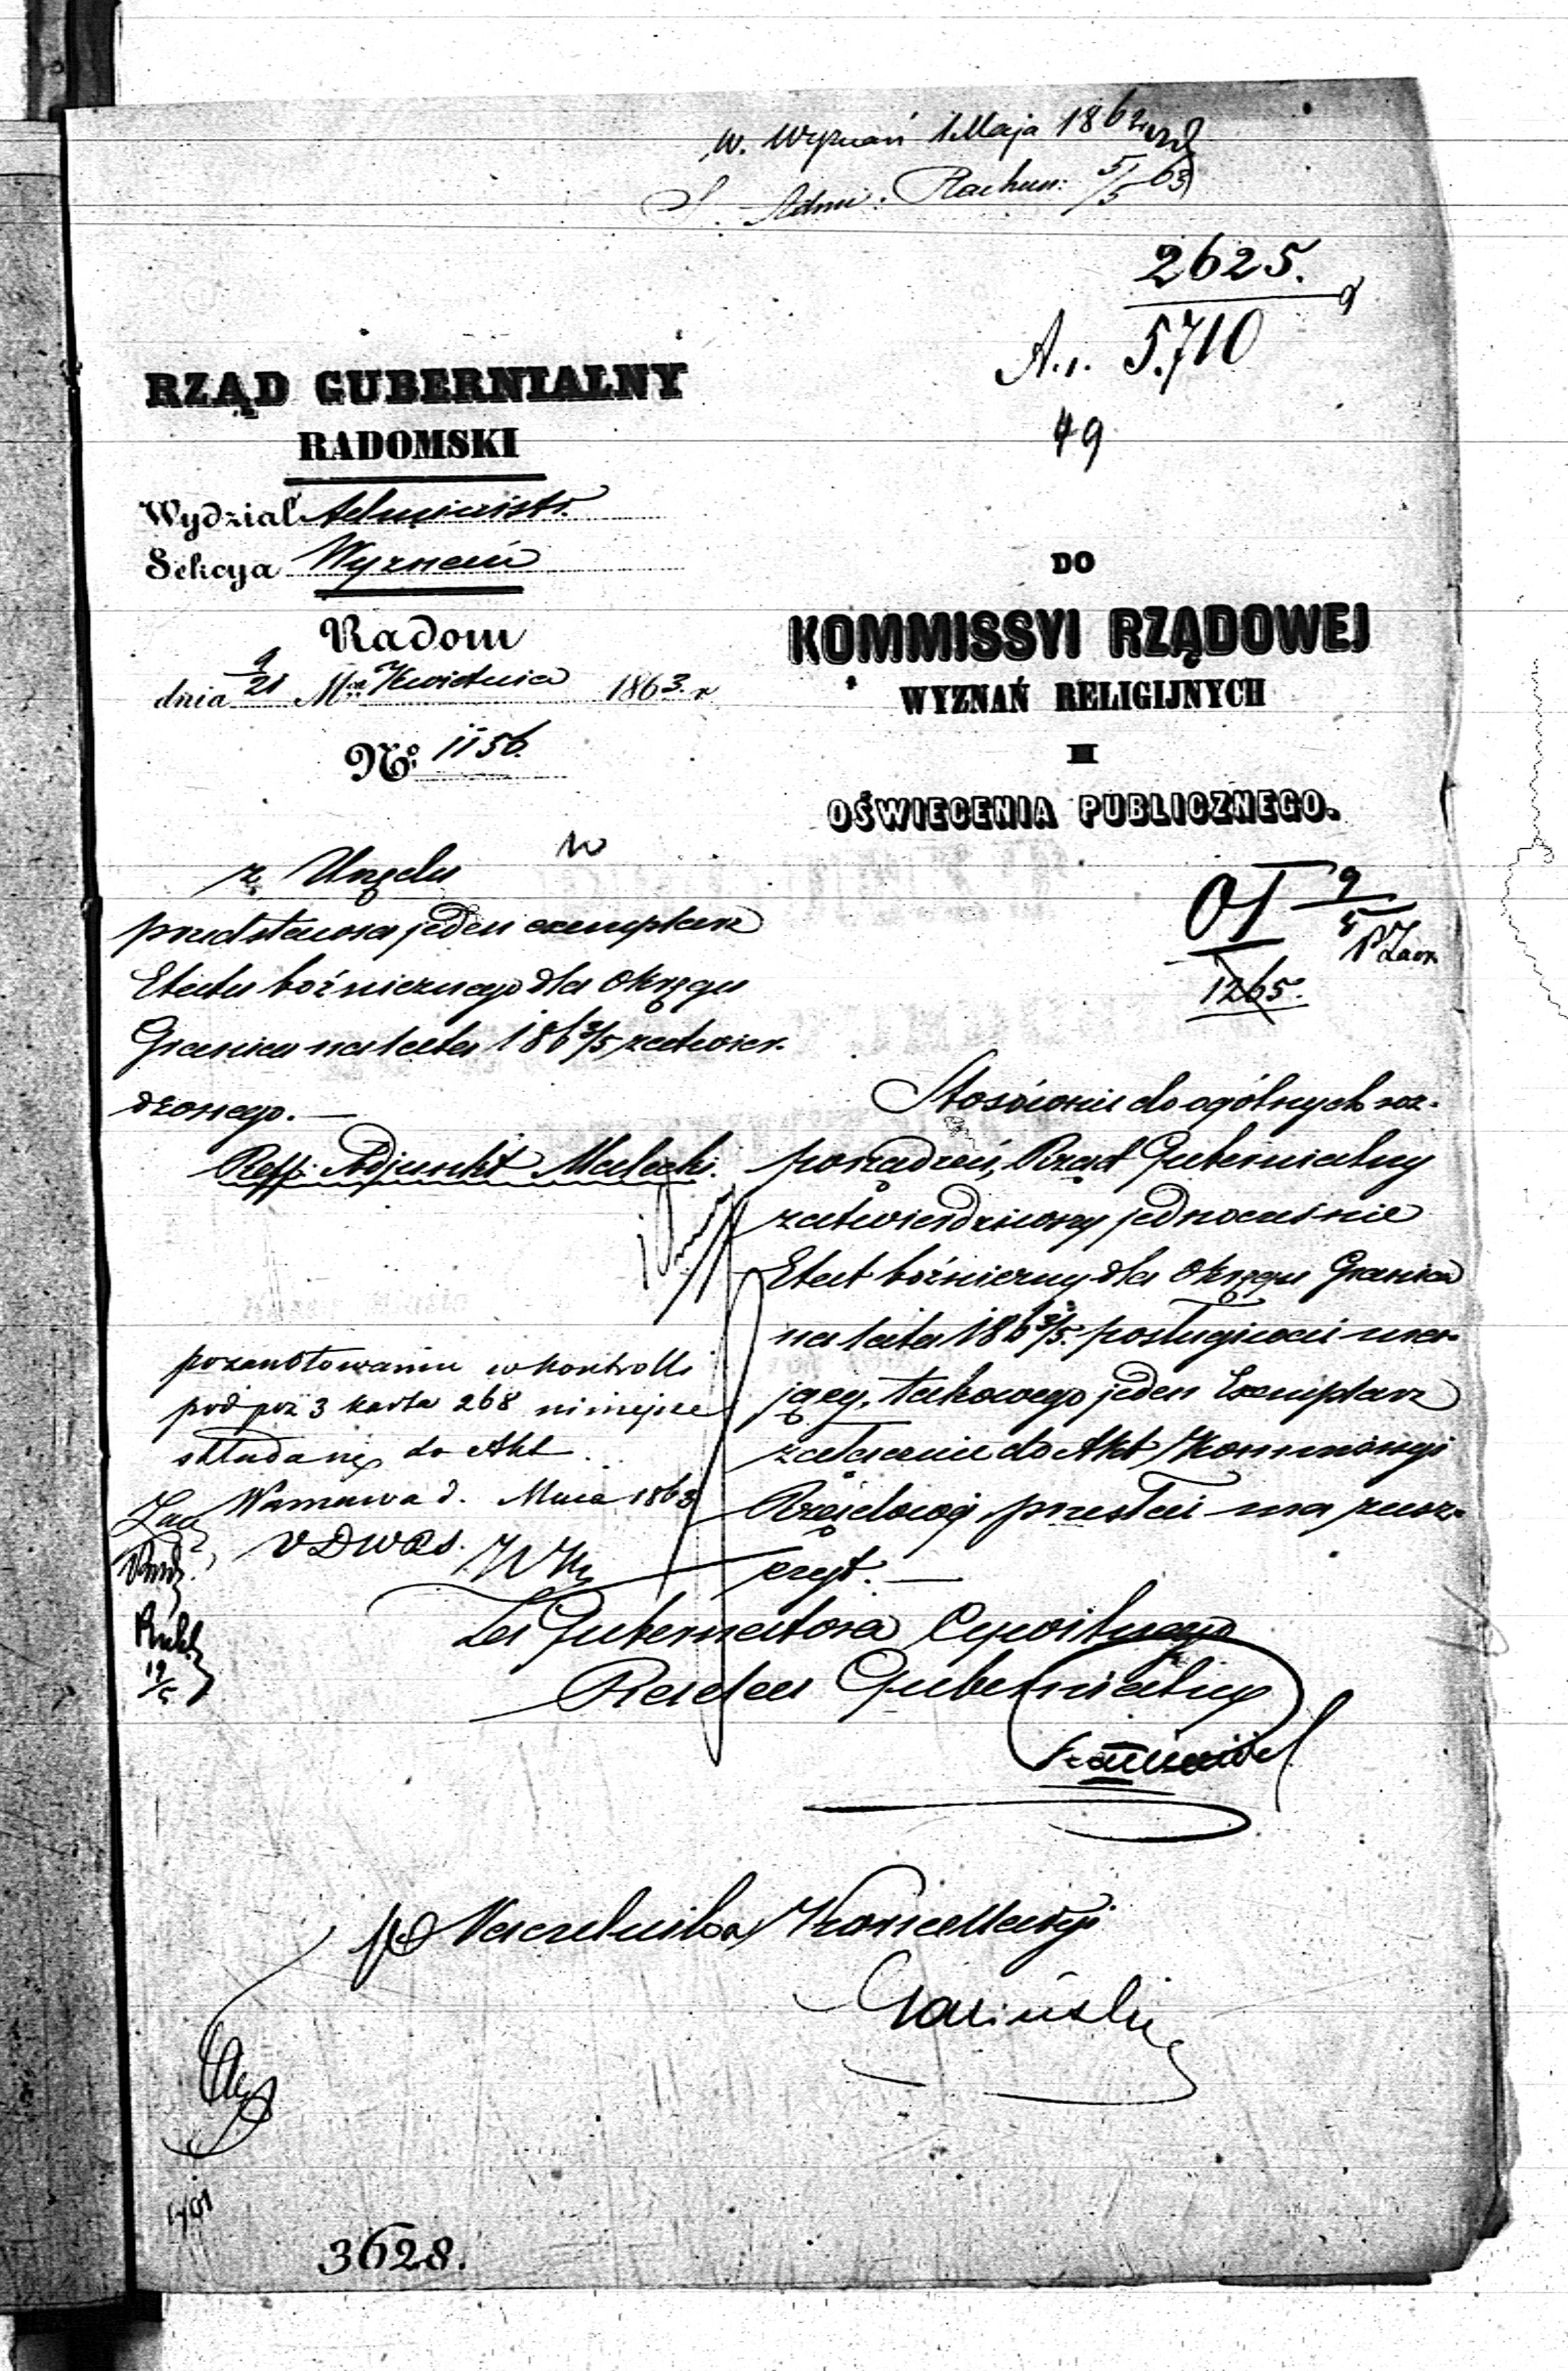 W. Wyznań 1 Maja 1863
S. Admi: Rachun: 5/5 63
2625.
A.1. 5710
49
RZĄD GUBERNIALNY
RADOMSKI
Wydział Administr.
Sekcya Wyznań
Radom
dnia 9/21 Mca Kwietnia 1863 r
No: 1156.
DO
KOMMISSYI RZĄDOWEJ
WYZNAŃ RELIGIJNYCH
I
OŚWIECENIA PUBLICZNEGO.
z Urzędu
przedstawia jeden exemplarz
Etatu bóźnicznego dla Okręgu
Granica na lata 186 3/5 zatwier-
dzonego. —
Reff: Adjunkt Malecki.
9/5
1265.
Stosownie do ogólnych roz-
porządzeń, Rząd Gubernialny
zatwierdziwszy jednocześnie
Etat bóźniczny dla Okręgu Granica
na lata 186 3/5. posługiwać ma-
jący, takowego jeden Exemplarz
załącznie do Akt Kommissyi
Rządowej przesłać ma zasz-
czyt. —
pozanotowaniu w kontrolli
pod poz 3 karta 268 niniejsze
składa się do Akt
Warszawa d. Maca 1863
VDWAS.
Za Gubernatora Cywilnego
Radca Gubernialny
po Naczelnika Kancellaryi
3628.